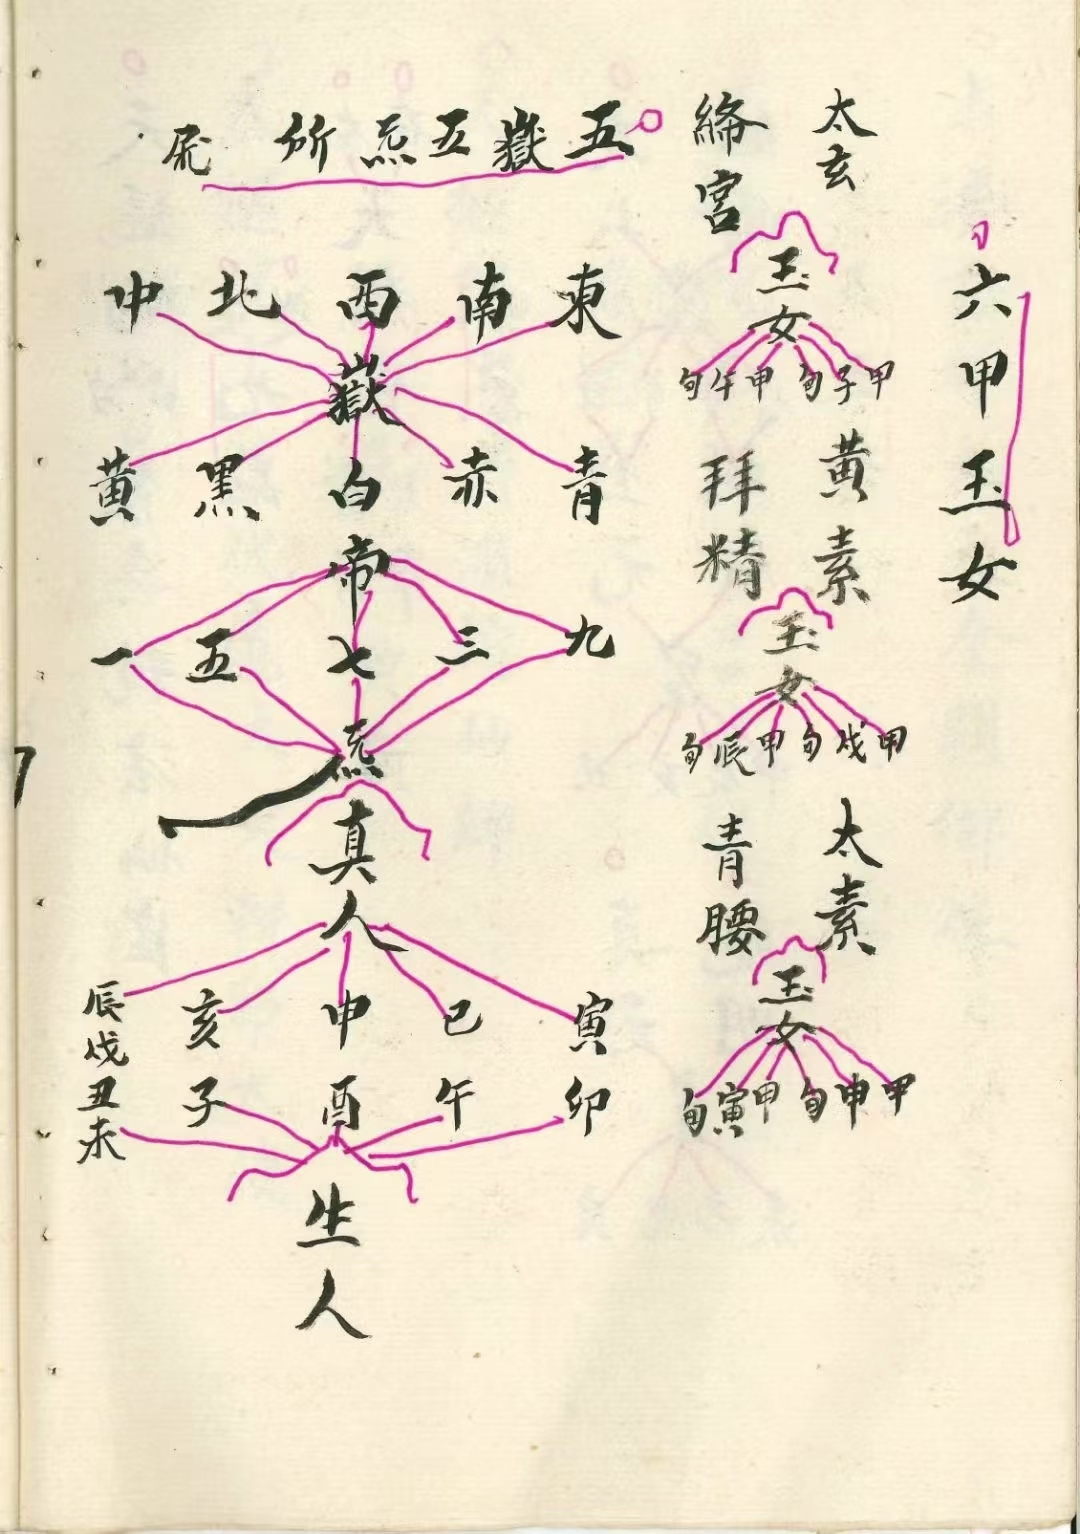 六甲玉女
太玄 絳宮
玉女
甲子旬 甲午旬
黃素 拜精
玉女
甲戌旬 甲辰旬
太素 青腰
玉女
甲申旬 甲寅旬
五嶽五炁所
東 南 西 北 中
嶽
青 赤 白 黑 黃
帝
九 三 七 五 一
炁
真人
寅卯 巳午 申酉 亥子 辰戌丑未
生人